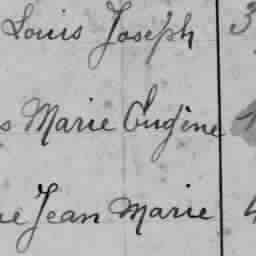 Louis Joseph 3
s Marie Eugène
ne Jean Marie 4